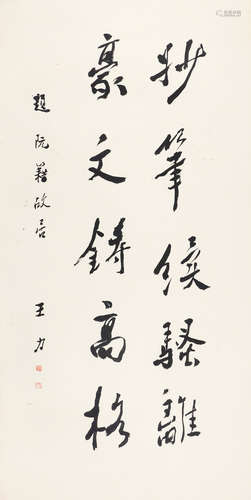 妙筆騷離
豪文鑄高格
題阮籍故居
王力